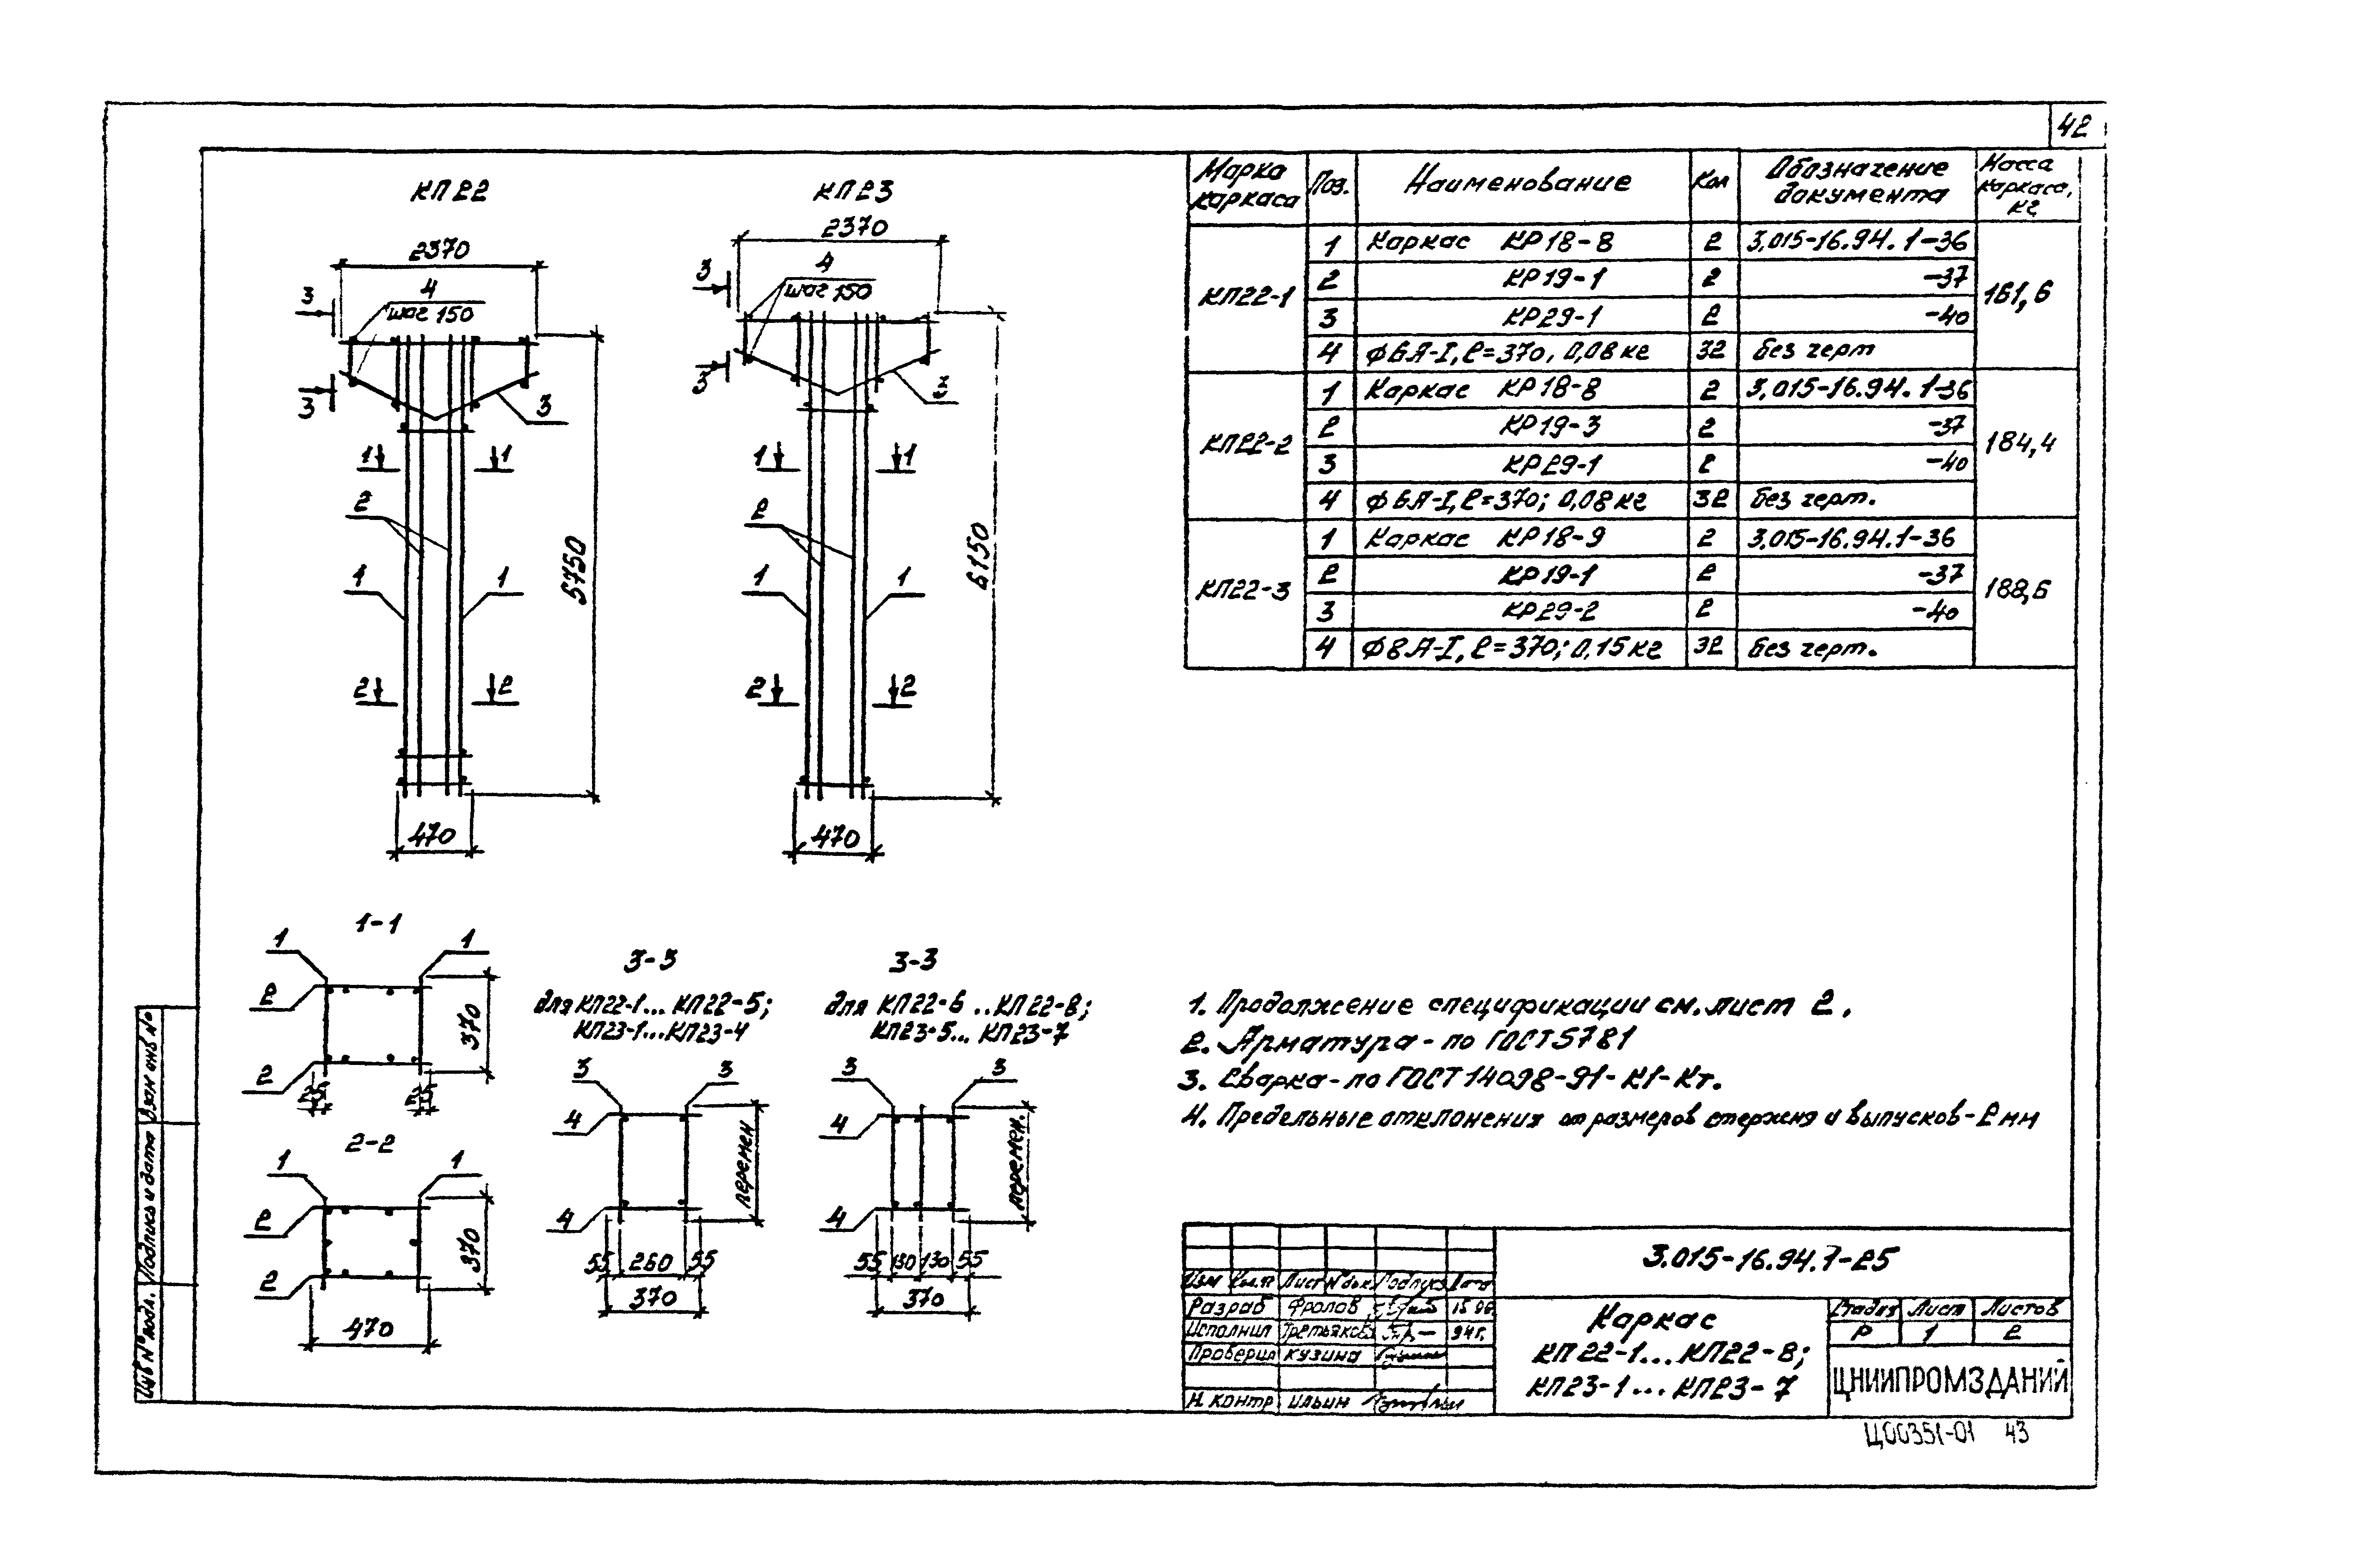 42
КП22
2370
3
4
шаг 150
3
3
1 1
2
5750
1 1
2 2
470
КП23
2370
3
4
шаг 150
3
3
1 1
2
6150
1 1
2 2
470
1-1
1 1
2
370
2
25 25
2-2
1 1
2
370
2
470
3-3
для КП22-1...КП22-5;
КП23-1...КП23-4
3 3
4
перемен
4
55 260 55
370
3-3
для КП22-6..КП22-8;
КП23-5...КП23-7
3 3
4
перемен.
4
55 130 130 55
370
Марка каркаса Поз. Наименование Кол Обозначение документа Масса каркаса, кг
КП22-1 161,6
1 Каркас КР18-8 2 3.015-16.94.1-36
2 КР19-1 2 -37
3 КР29-1 2 -40
4 ф6А-I, ℓ=370, 0,08 кг 32 без черт
КП22-2 184,4
1 Каркас КР18-8 2 3.015-16.94.1-36
2 КР19-3 2 -37
3 КР29-1 2 -40
4 ф6А-I, ℓ=370; 0,08 кг 32 без черт.
КП22-3 188,6
1 Каркас КР18-9 2 3.015-16.94.1-36
2 КР19-1 2 -37
3 КР29-2 2 -40
4 ф8А-I, ℓ=370; 0,15 кг 32 без черт.
1. Продолжение спецификации см. лист 2.
2. Арматура - по ГОСТ 5781
3. Сварка - по ГОСТ 14098-91-К1-Кт.
4. Предельные отклонения от размеров стержня и выпусков - 2 мм
3.015-16.94.1-25
Изм Кол.уч Лист № док Подпись Дата
Разраб Фролов
Исполнил Третьякова 94г.
Проверил Кузина
Н. контр Ильин
Каркас
КП22-1...КП22-8;
КП23-1...КП23-7
Стадия Лист Листов
Р 1 2
ЦНИИПРОМЗДАНИЙ
Ц00351-01 43
Инв № подл. Подпись и дата Взам инв №